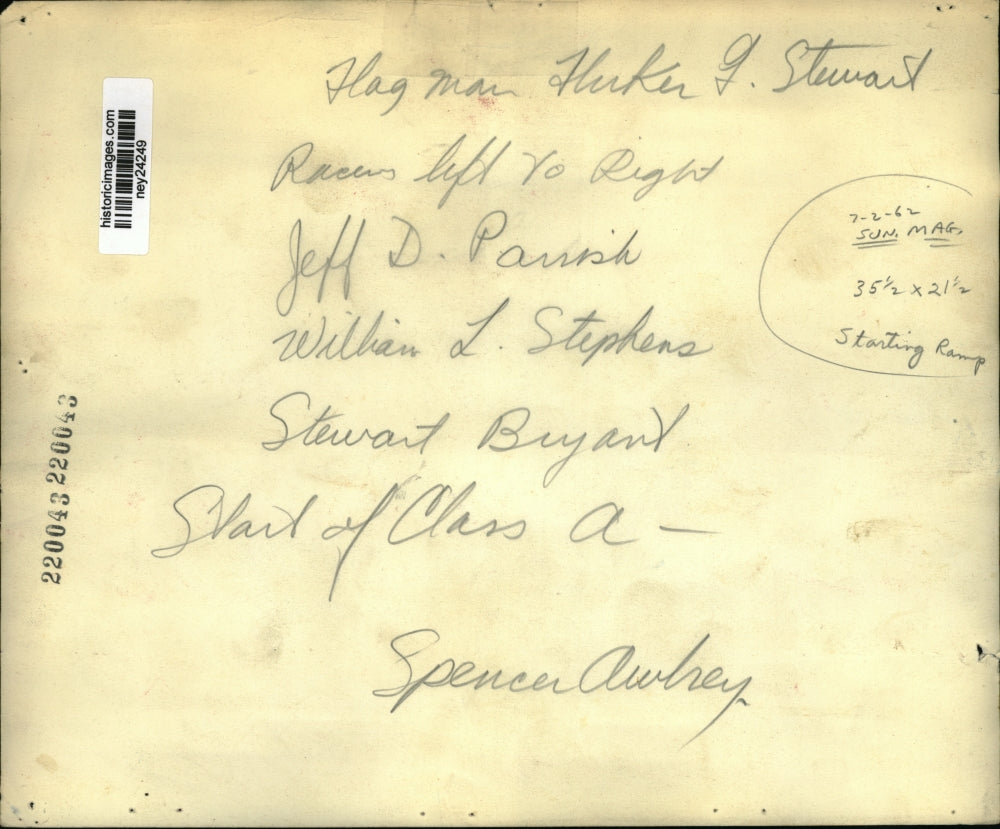 Flag man Huker G. Stewart
Racers left to Right
Jeff D. Parrish
William L. Stephens
Stewart Bryant
Start of Class A —
Spencer Awbrey
7-2-62
SUN. MAG.
35 1/2 x 21 1/2
Starting Ramp
historicimages.com
ney24249
220043 220043